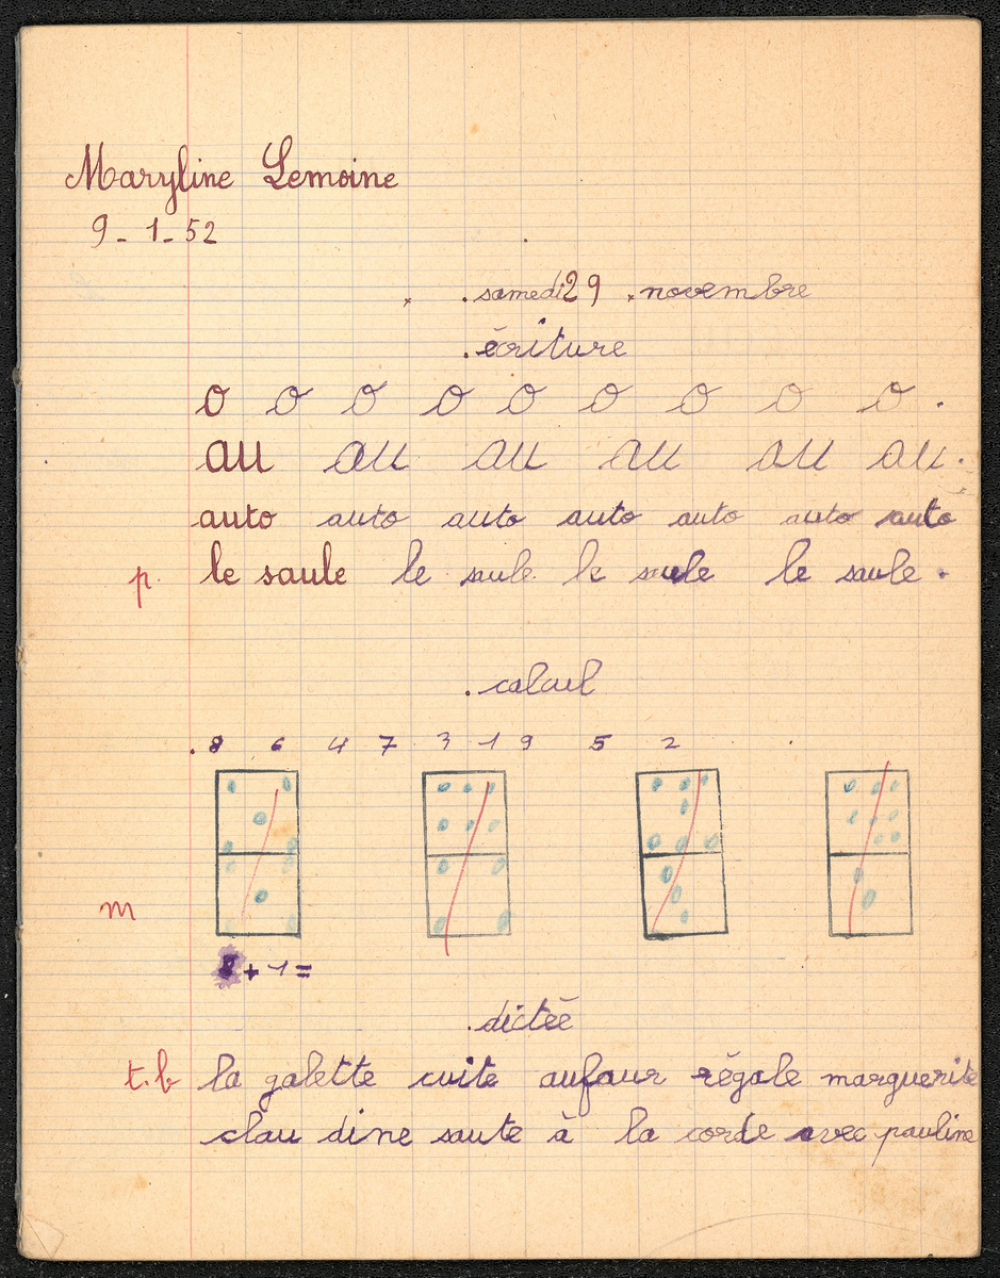 Maryline Lemoine
9-1-52
samedi 29 novembre
écriture
o o o o o o o o o.
au au au au au au.
auto auto auto auto auto auto auto
p. le saule le saule le saule le saule.
calcul
8 6 4 7 3 1 9 5 2
m
8+1=
dictée
t.b la galette cuite aufour régale marguerite
clau dine saute à la corde avec pauline